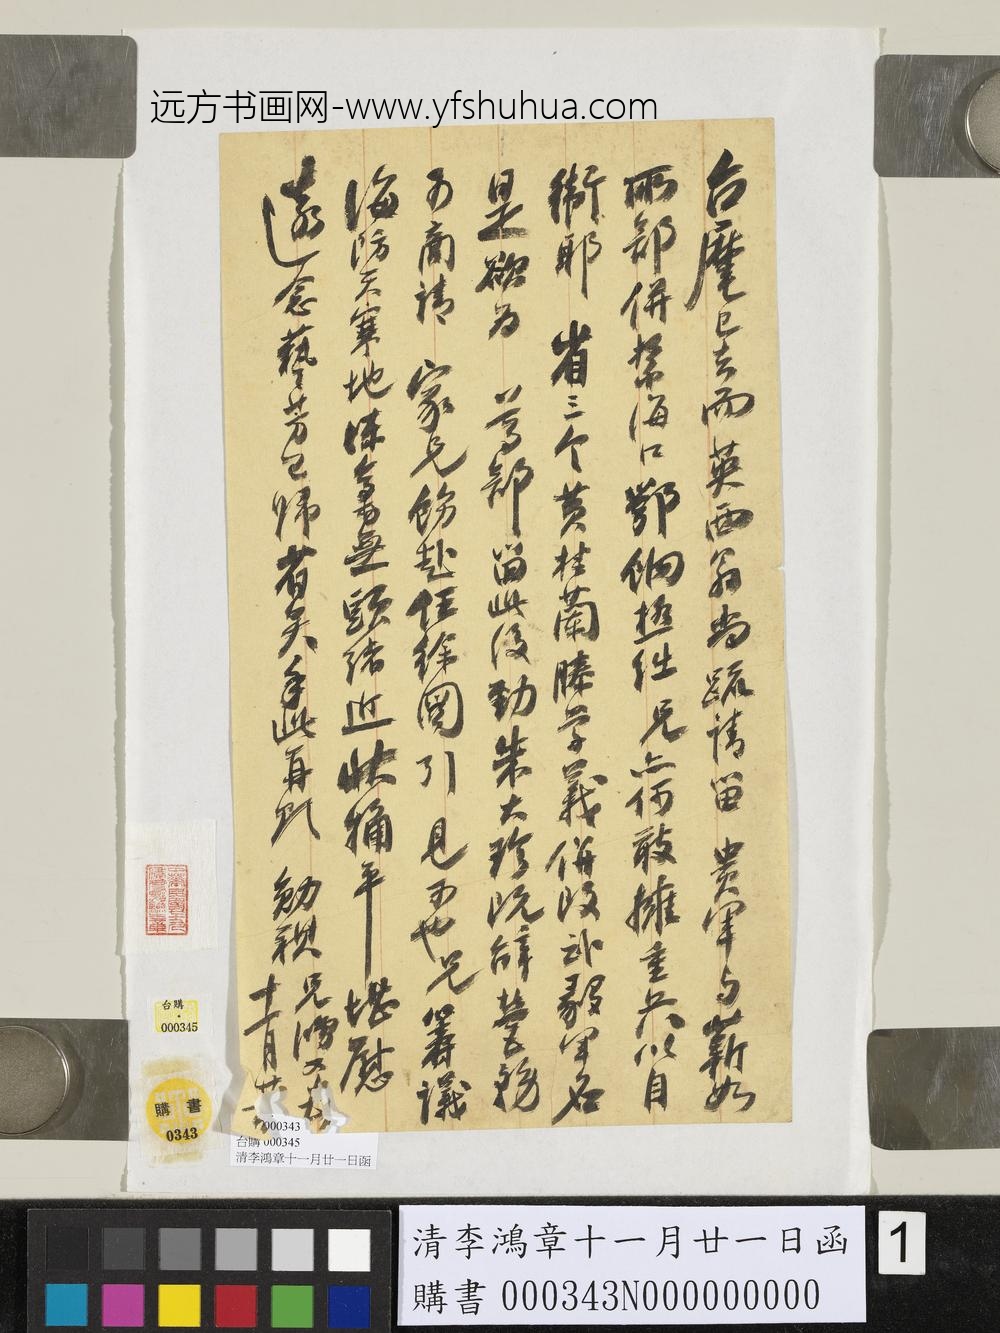 远方书画网-www.yfshuhua.com
台麾已去而英西翁尚疏请留 贵军与蕲如
两部併紮海口鄂饷極绌兄亦何敢擁重兵以自
衞耶 省三尒黄桂蘭滕学義併改武毅军名
是欲为 尊部留此後勁朱大 既辞營務
可商請 家兄飭赴任徐图引 見可也兄籌議
海防天寒地 無頭緒近状稍平堪慰
遠念藝芳已歸省矣手此再 勛祺兄鴻又
十一月廿一
台購
000345
購書
0343
000343
台購 000345
清李鴻章十一月廿一日函
清李鴻章十一月廿一日函
購書 000343N000000000
1